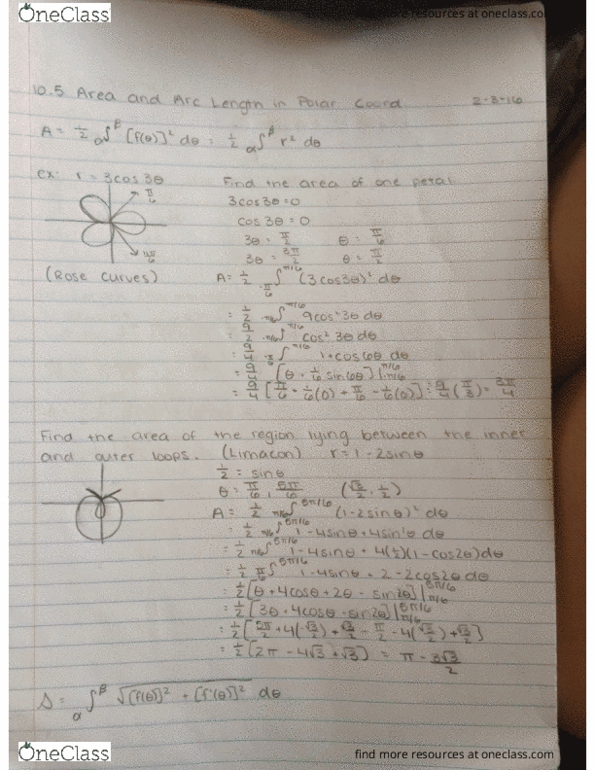 OneClass
find more resources at oneclass.com
10.5 Area and Arc Length in Polar Coord. 2-3-16
A = 1/2 α∫^β [f(θ)]² dθ = 1/2 α∫^β r² dθ
ex: r = 3cos3θ
Find the area of one petal.
3cos3θ=0
cos3θ=0
3θ = π/2 θ = π/6
3θ = 3π/2 θ = π/2
π/6
(Rose Curves)
A = 1/2 -π/6∫^π/6 (3cos3θ)² dθ
= 1/2 -π/6∫^π/6 9cos²3θ dθ
= 9/2 -π/6∫^π/6 cos²3θ dθ
= 9/4 -π/6∫^π/6 1+cos6θ dθ
= 9/4 [θ + 1/6 sin6θ]|^π/6 -π/6
= 9/4 [π/6 + 1/6(0) + π/6 - 1/6(0)] = 9/4 (π/3) = 3π/4
Find the area of the region lying between the inner
and outer loops. (Limacon) r = 1-2sinθ
1/2 = sinθ
θ = π/6, 5π/6 (√3/2, 1/2)
A = 1/2 π/6∫^5π/6 (1-2sinθ)² dθ
= 1/2 π/6∫^5π/6 1-4sinθ+4sin²θ dθ
= 1/2 π/6∫^5π/6 1-4sinθ + 4(1/2)(1-cos2θ)dθ
= 1/2 π/6∫^5π/6 1-4sinθ + 2-2cos2θ dθ
= 1/2 [θ+4cosθ+2θ - sin2θ]|^5π/6 π/6
= 1/2 [3θ+4cosθ-sin2θ]|^5π/6 π/6
= 1/2 [5π/2 +4(-√3/2)+√3/2 - π/2 -4(√3/2)+√3/2]
= 1/2 [2π - 4√3 +√3] = π - 3√3/2
s = α∫^β √[f(θ)]² + [f'(θ)]² dθ
OneClass
find more resources at oneclass.com